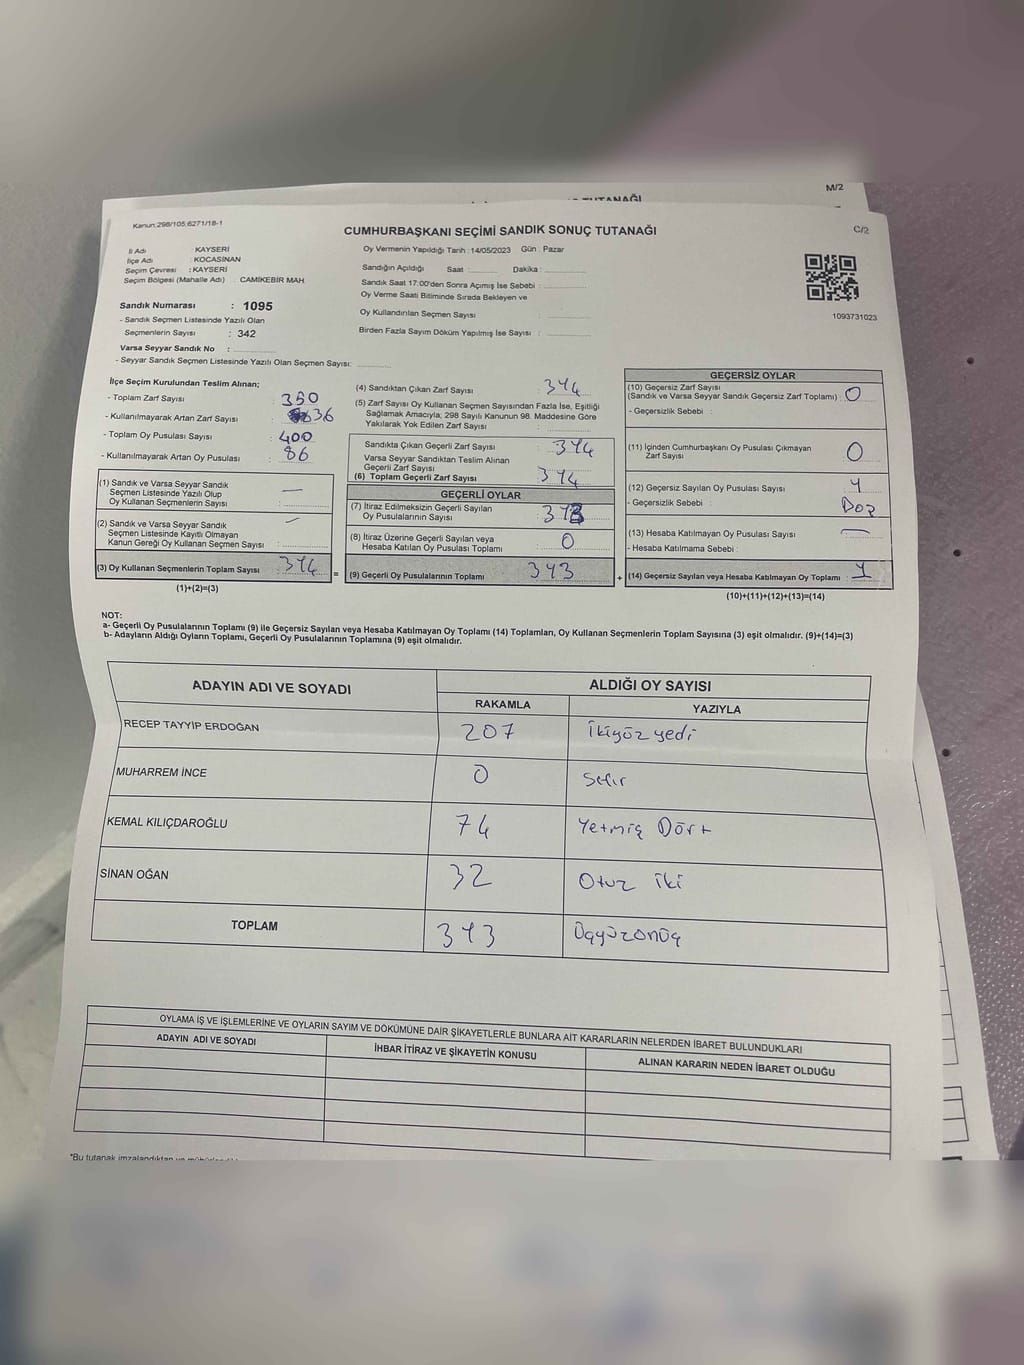 M/2
TUTANAĞI
Kanun:298/105,6271/18-1
CUMHURBAŞKANI SEÇİMİ SANDIK SONUÇ TUTANAĞI
C/2
İl Adı : KAYSERİ
İlçe Adı : KOCASİNAN
Seçim Çevresi : KAYSERİ
Seçim Bölgesi (Mahalle Adı) : CAMİKEBİR MAH
Oy Vermenin Yapıldığı Tarih :14/05/2023 Gün : Pazar
Sandığın Açıldığı Saat : Dakika :
Sandık Saat 17:00'den Sonra Açımış İse Sebebi :
Oy Verme Saati Bitiminde Sırada Bekleyen ve
Oy Kullandırılan Seçmen Sayısı :
Birden Fazla Sayım Döküm Yapılmış İse Sayısı :
1093731023
Sandık Numarası : 1095
- Sandık Seçmen Listesinde Yazılı Olan
Seçmenlerin Sayısı : 342
Varsa Seyyar Sandık No :
- Seyyar Sandık Seçmen Listesinde Yazılı Olan Seçmen Sayısı:
İlçe Seçim Kurulundan Teslim Alınan;
- Toplam Zarf Sayısı : 350
- Kullanılmayarak Artan Zarf Sayısı : 36
- Toplam Oy Pusulası Sayısı : 400
- Kullanılmayarak Artan Oy Pusulası : 86
(1) Sandık ve Varsa Seyyar Sandık
Seçmen Listesinde Yazılı Olup
Oy Kullanan Seçmenlerin Sayısı : —
(2) Sandık ve Varsa Seyyar Sandık
Seçmen Listesinde Kayıtlı Olmayan
Kanun Gereği Oy Kullanan Seçmen Sayısı : —
(3) Oy Kullanan Seçmenlerin Toplam Sayısı : 314
(1)+(2)=(3)
(4) Sandıktan Çıkan Zarf Sayısı : 314
(5) Zarf Sayısı Oy Kullanan Seçmen Sayısından Fazla İse, Eşitliği
Sağlamak Amacıyla, 298 Sayılı Kanunun 98. Maddesine Göre
Yakılarak Yok Edilen Zarf Sayısı :
Sandıkta Çıkan Geçerli Zarf Sayısı : 314
Varsa Seyyar Sandıktan Teslim Alınan
Geçerli Zarf Sayısı :
(6) Toplam Geçerli Zarf Sayısı : 314
GEÇERLİ OYLAR
(7) İtiraz Edilmeksizin Geçerli Sayılan
Oy Pusulalarının Sayısı : 313
(8) İtiraz Üzerine Geçerli Sayılan veya
Hesaba Katılan Oy Pusulası Toplamı : 0
= (9) Geçerli Oy Pusulalarının Toplamı : 313 +
GEÇERSİZ OYLAR
(10) Geçersiz Zarf Sayısı
(Sandık ve Varsa Seyyar Sandık Geçersiz Zarf Toplamı) : 0
- Geçersizlik Sebebi :
(11) İçinden Cumhurbaşkanı Oy Pusulası Çıkmayan
Zarf Sayısı : 0
(12) Geçersiz Sayılan Oy Pusulası Sayısı : 1
- Geçersizlik Sebebi :
(13) Hesaba Katılmayan Oy Pusulası Sayısı : —
- Hesaba Katılmama Sebebi :
(14) Geçersiz Sayılan veya Hesaba Katılmayan Oy Toplamı : 1
(10)+(11)+(12)+(13)=(14)
NOT:
a- Geçerli Oy Pusulalarının Toplamı (9) ile Geçersiz Sayılan veya Hesaba Katılmayan Oy Toplamı (14) Toplamları, Oy Kullanan Seçmenlerin Toplam Sayısına (3) eşit olmalıdır. (9)+(14)=(3)
b- Adayların Aldığı Oyların Toplamı, Geçerli Oy Pusulalarının Toplamına (9) eşit olmalıdır.
ADAYIN ADI VE SOYADI
ALDIĞI OY SAYISI
RAKAMLA YAZIYLA
RECEP TAYYİP ERDOĞAN 207 İkiyüz yedi
MUHARREM İNCE 0 Sıfır
KEMAL KILIÇDAROĞLU 74 Yetmiş Dört
SİNAN OĞAN 32 Otuz iki
TOPLAM 313 Üçyüzonüç
OYLAMA İŞ VE İŞLEMLERİNE VE OYLARIN SAYIM VE DÖKÜMÜNE DAİR ŞİKAYETLERLE BUNLARA AİT KARARLARIN NELERDEN İBARET BULUNDUKLARI
ADAYIN ADI VE SOYADI
İHBAR İTİRAZ VE ŞİKAYETİN KONUSU
ALINAN KARARIN NEDEN İBARET OLDUĞU
*Bu tutanak imzalandıktan